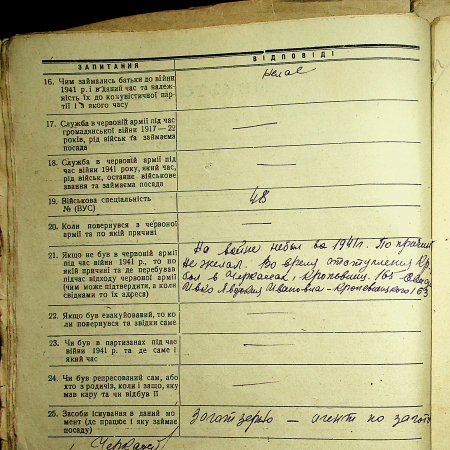 ЗАПИТАННЯ
ВІДПОВІДІ
16. Чим займались батьки до війни
1941 р. і в даний час та належ-
ність їх до комуністичної пар-
тії і з якого часу
17. Служба в червоній армії під час
громадянської війни 1917—22
років, рід військ та займаєма
посада
—
18. Служба в червоній армії під
час війни 1941 року, який час,
рід військ, останнє військове
звання та займаєма посада
—
19. Військова спеціальність
№ (ВУС)
48
20. Коли повернувся з червоної
армії та по якій причині
—
21. Якщо не був в червоній армії
під час війни 1941 р., то по
якій причині та де перебував
підчас відходу червоної армії
(чим може підтвердити, а коли
свідками то їх адреса)
На войне не был во 1941 г. По
не желал. Во время отступления
был в Черкассах, 165
Ивко Авдокия Ивановна – 163
22. Якщо був евакуйований, то ко
ли повернувся та звідки саме
—
23. Чи був в партизанах під час
війни 1941 р. та де саме і
який час
—
24. Чи був репресований сам, або
хто з родичів, коли і защо, яку
мав кару та чи відбув її
—
25. Засоби існування в даний мо
мент (де працює і яку займає
посаду)
Заготзерно — агент по загот